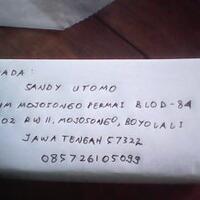 ADA :
SANDY UTOMO
UM MOJOSONGO PERMAI BLOD-84
02 RW 11, MOJOSONGO, BOYOLALI
JAWA TENGAH 57322
085726105099